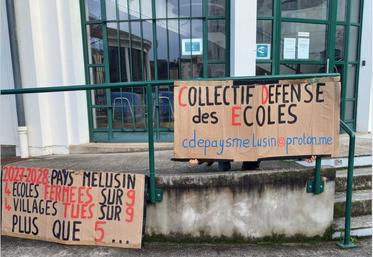 COLLECTIF DEFENSE
des ECOLES
cdepaysmelusin@proton.me
2027-2028: PAYS MELUSIN
4 ECOLES FERMEES SUR 9
4 VILLAGES TUES SUR 9
PLUS QUE 5...